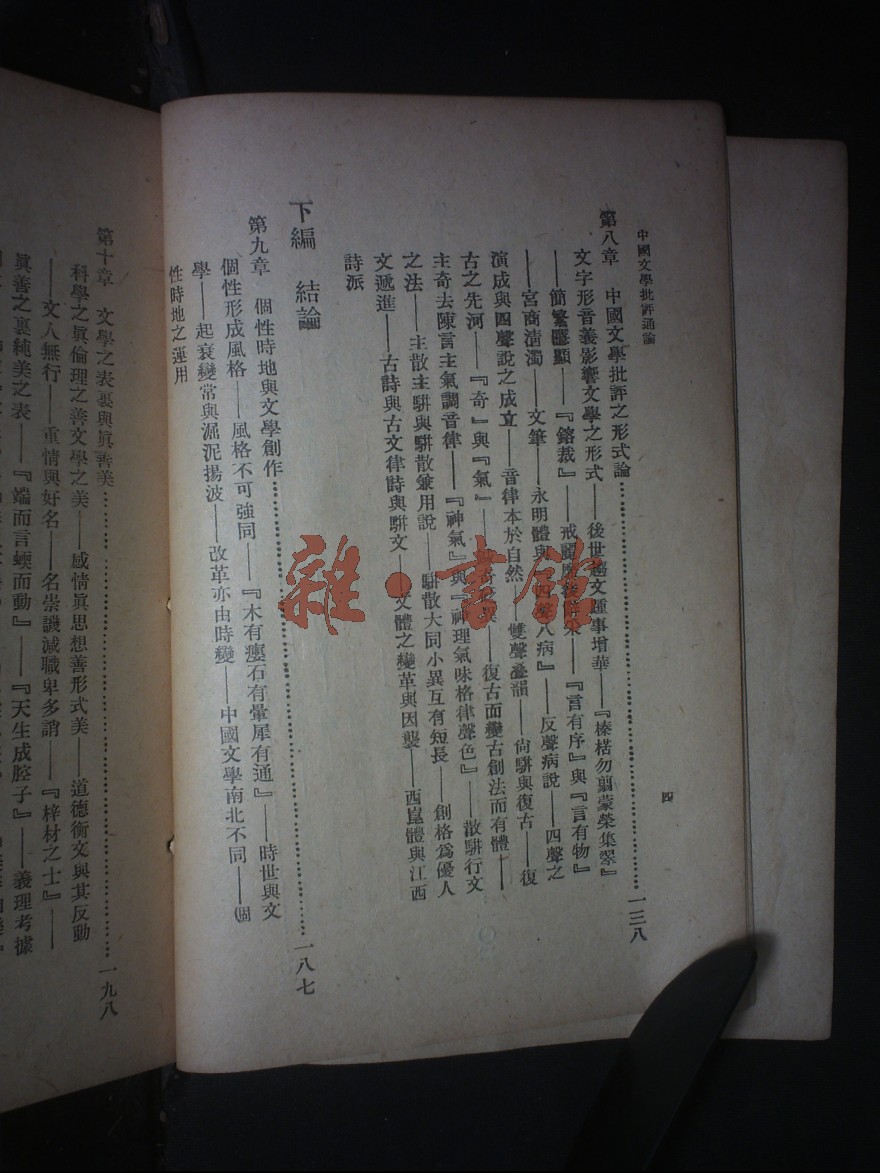 中國文學批評通論
四
第八章 中國文學批評之形式論……一三八
文字形音義影響文學之形式——後世趨文踵事增華——『榛楛勿翦蒙榮集翠』
——簡繁隱顯——『鎔裁』——戒麗——『言有序』與『言有物』
——宮商清濁——文筆——永明體與『四聲八病』——反聲病說——四聲之
演成與四聲說之成立——音律本於自然——雙聲疊韻——尙駢與復古——復
古之先河——『奇』與『氣』——復古而變古創法而有體——
主奇去陳言主氣調音律——『神氣』與『神理氣味格律聲色』——散駢行文
之法——主散主駢與駢散兼用說——駢散大同小異互有短長——創格爲優人
文遞進——古詩與古文律詩與駢文——文體之變革與因襲——西崑體與江西
詩派
下編 結論
第九章 個性時地與文學創作……一八七
個性形成風格——風格不可強同——『木有癭石有暈犀有通』——時世與文
學——起衰變常與淈泥揚波——改革亦由時變——中國文學南北不同——(因
性時地之運用
第十章 文學之表裏與眞善美……一九八
科學之眞倫理之善文學之美——感情眞思想善形式美——道德衡文與其反動
——文人無行——重情與好名——名崇譏減職卑多誚——『梓材之士』——
眞善之裏純美之表——『端而言蝡而動』——『天生成腔子』——義理考據
雜·書館